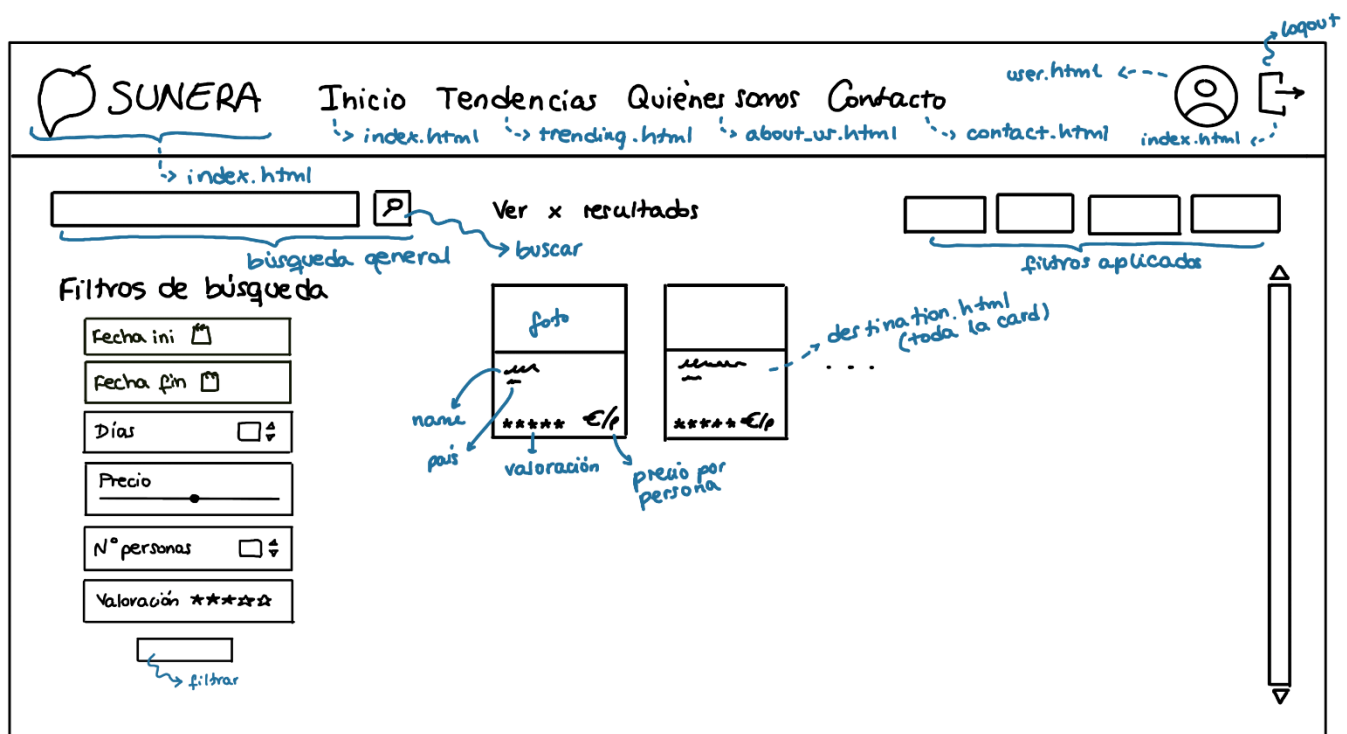 logout
SUNERA Inicio Tendencias Quiénes somos Contacto
user.html
index.html trending.html about_us.html contact.html index.html
index.html
Ver x resultados
búsqueda general
buscar
filtros aplicados
Filtros de búsqueda
Fecha ini
Fecha fin
Días
Precio
Nº personas
Valoración
filtrar
foto
destination.html
(toda la card)
. . .
name
***** €/p
***** €/p
país
valoración
precio por
persona